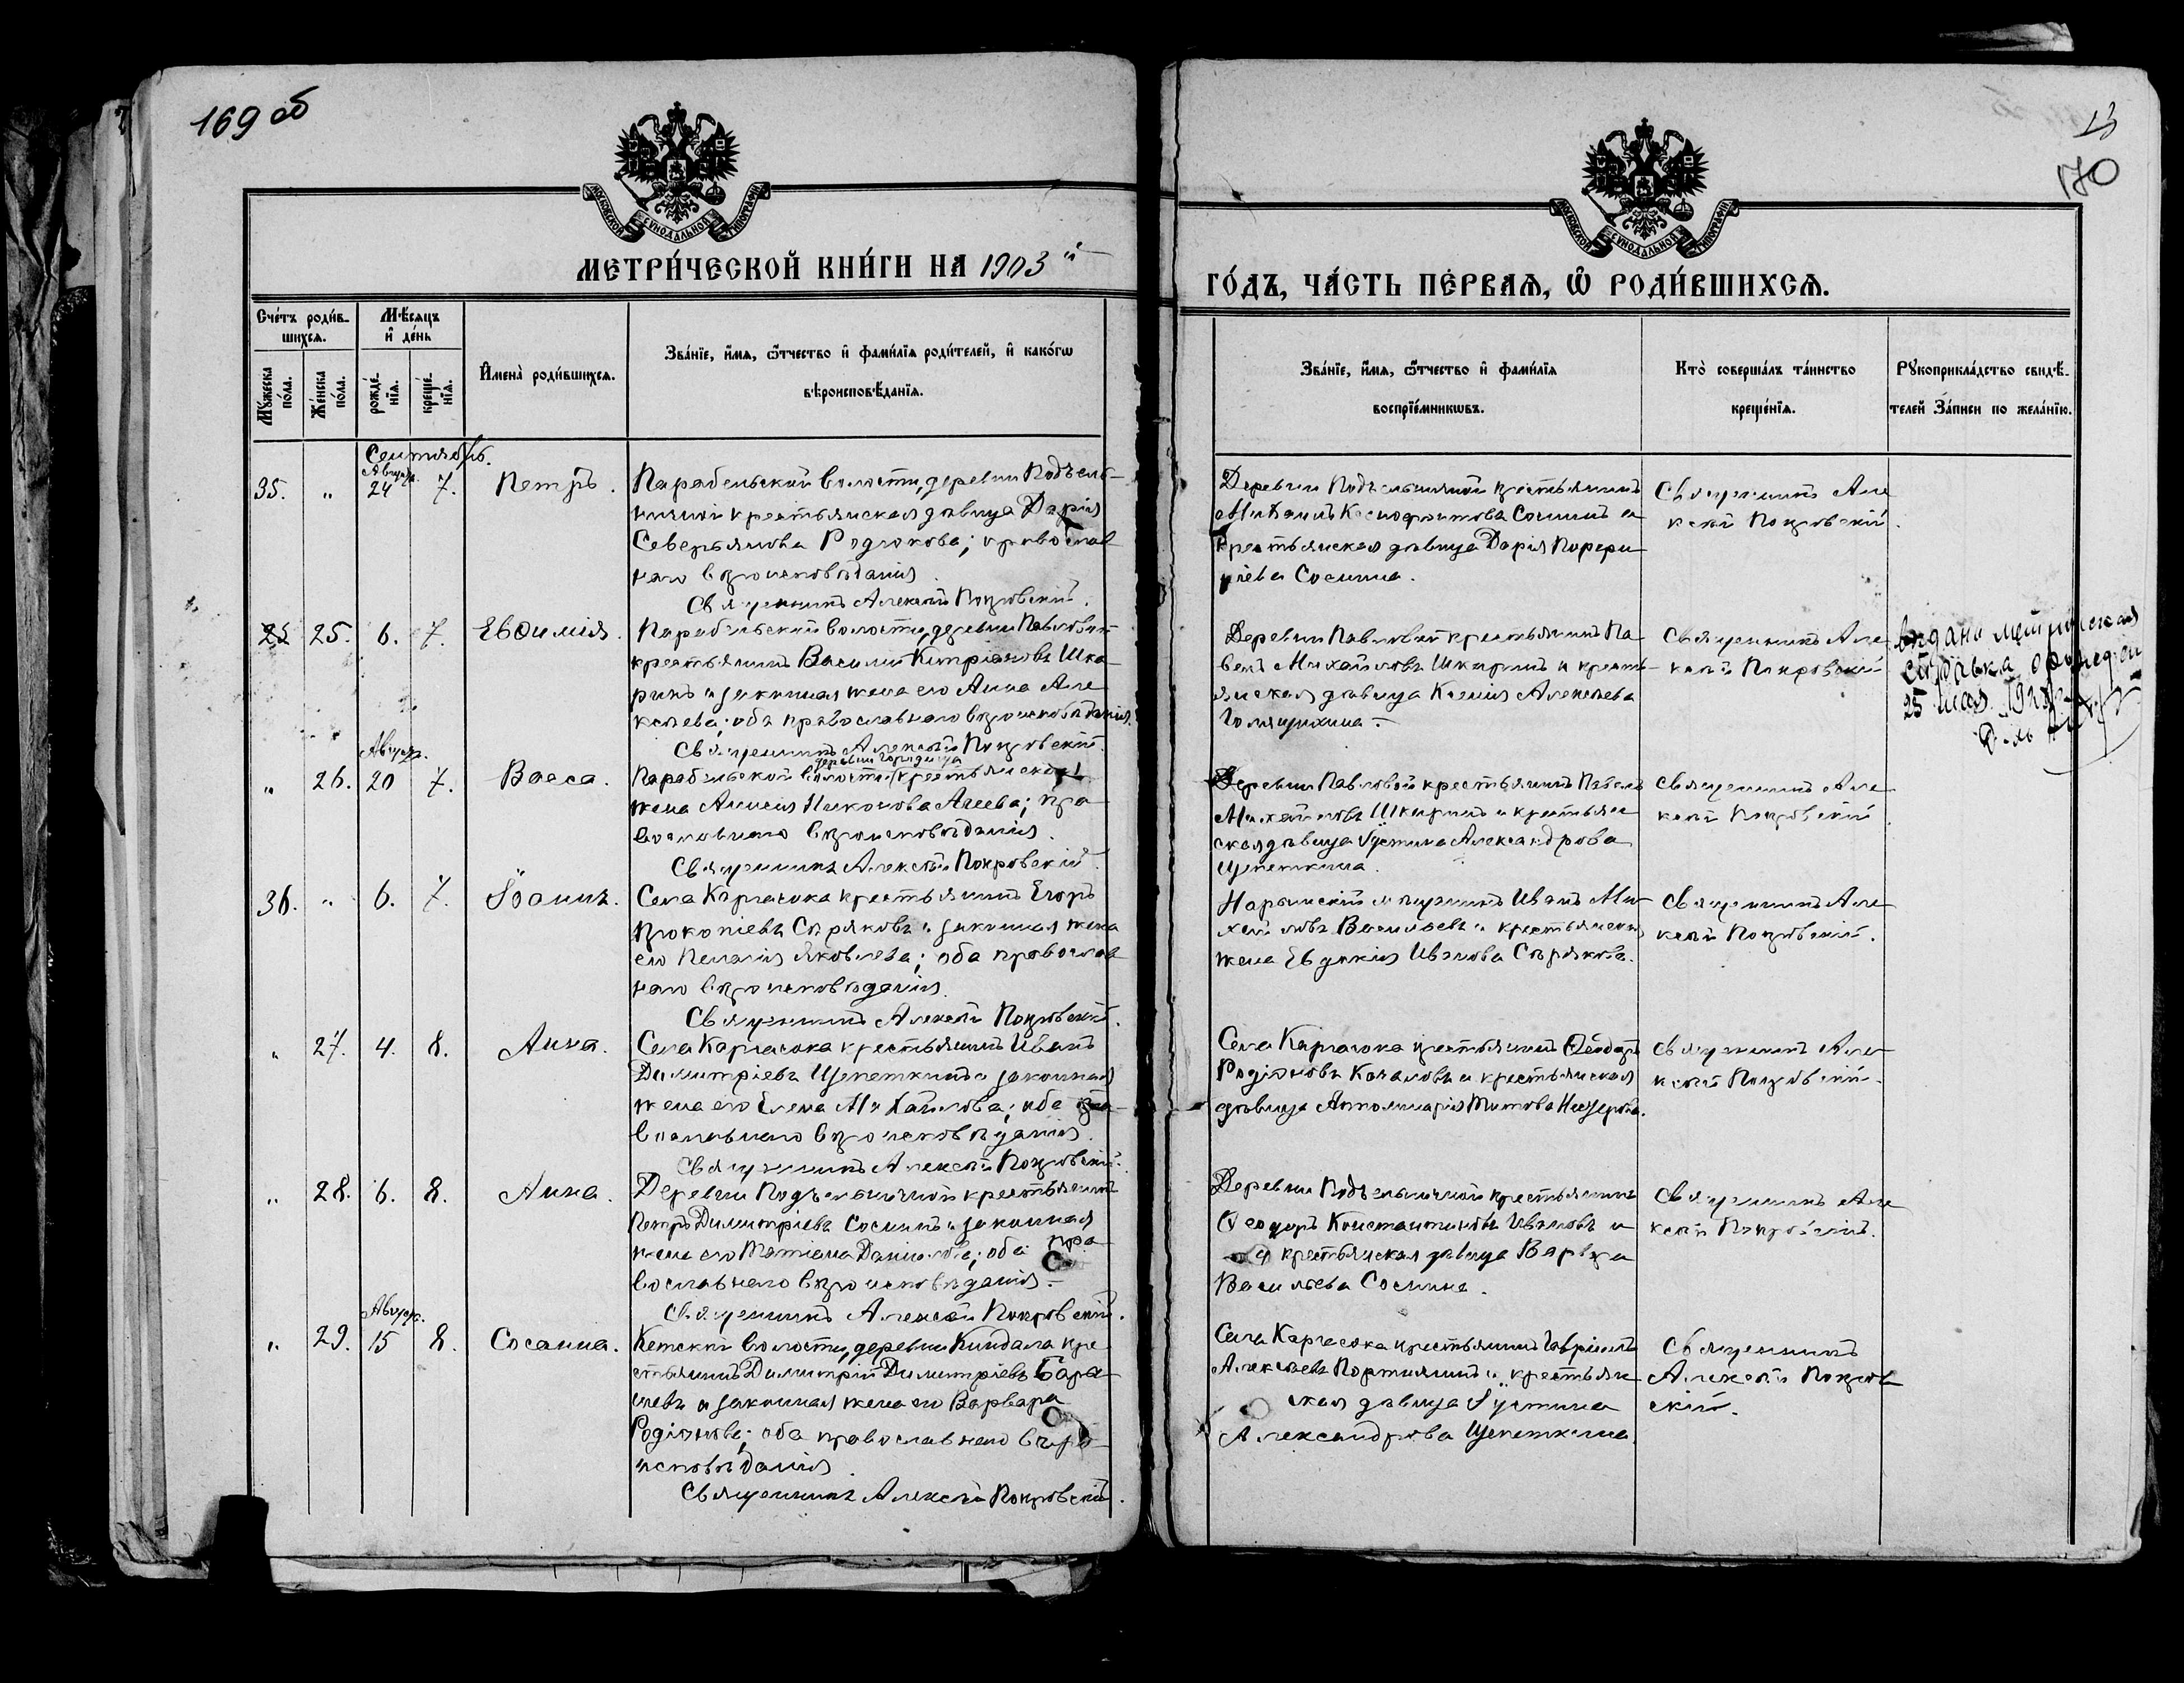 169 об
МОСКОВСКОЙ СѴНОДАЛЬНОЙ ТИПОГРАФІИ
МЕТРИ́ЧЕСКОЙ КНИ́ГИ НА 1903 й
Сче́тъ роди́в-
шихсѧ.
Мѣ́сѧцъ
и҆ де́нь
Мꙋ́жеска
по́ла.
Же́нска
по́ла.
рожде́-
нїѧ.
креще́-
нїѧ.
И҆мена̀ роди́вшихсѧ.
Зва́нїе, и҆́мѧ, ѻ҆́тчество и҆ фами́лїѧ роди́телей, и҆ како́гѡ
вѣроисповѣ́данїѧ.
Сентябрь.
35. " Август. 24 7. Петръ. Парабельской волости, деревни Подъель-
ничной крестьянская дѣвица Дарія
Северьянова Родюкова; православ
наго вѣроисповѣданія.
Священникъ Алексѣй Покровскій.
25. 6. 7. Евѳимія. Парабельской волости, деревни Павловой
крестьянинъ Василій Кипріановъ Шка-
ринъ и законная жена его Анна Але
ксѣева; оба православнаго вѣроисповѣданія.
Священникъ Алексѣй Покровскій.
" 26. Август. 20 7. Васса. Парабельской волости, крестьянская
деревни Городища
жена Анисія Никонова Агеева; пра
вославнаго вѣроисповѣданія.
Священникъ Алексѣй Покровскій.
36. " 6. 7. Іоаннъ. Села Каргасока крестьянинъ Егоръ
Прокопіевъ Сѣряковъ и законная жена
его Пелагія Яковлева; оба православ
наго вѣроисповѣданія.
Священникъ Алексѣй Покровскій.
" 27. 4. 8. Анна. Села Каргасока крестьянинъ Иванъ
Димитріевъ Щепеткинъ и законная
жена его Елена Михайлова; оба пра-
вославнаго вѣроисповѣданія.
Священникъ Алексѣй Покровскій.
" 28. 6. 8. Анна. Деревни Подъельничной крестьянинъ
Петръ Димитріевъ Соснинъ и законная
жена его Татіана Даніилова; оба пра
вославнаго вѣроисповѣданія.
Священникъ Алексѣй Покровскій.
" 29. Август. 15 8. Сосанна. Кетской волости, деревни Киндала кре
стьянинъ Димитрій Димитріевъ Бары
шевъ и законная жена его Варвара
Родіонова; оба православнаго вѣро-
исповѣданія.
Священникъ Алексѣй Покровскій.
13
170
МОСКОВСКОЙ СѴНОДАЛЬНОЙ ТИПОГРАФІИ
ГО́ДЪ, ЧА́СТЬ ПЕ́РВАѦ, Ѡ҆ РОДИ́ВШИХСѦ.
Зва́нїе, и҆́мѧ, ѻ҆́тчество и҆ фами́лїѧ
воспрїе́мникѡвъ.
Кто̀ соверша́лъ та́инство
креще́нїѧ.
Рꙋкоприкла́дство свидѣ́-
телей За́писи по жела́нїю.
Деревни Подъельничной крестьянинъ
Михаилъ Ксенофонтовъ Соснинъ и
крестьянская дѣвица Дарія Порфи
ріева Соснина.
Священникъ Але
ксѣй Покровскій.
Деревни Павловой крестьянинъ Па-
велъ Михайловъ Шкаринъ и кресть-
янская дѣвица Ксенія Алексѣева
Голящихина.
Священникъ Але-
ксѣй Покровскій
выдана метрическая
25 мая
Деревни Павловой крестьянинъ Павелъ
Михайловъ Шкаринъ и крестьян
ская дѣвица Іустина Александрова
Щепеткина.
Священникъ Але-
ксѣй Покровскій.
Нарымскій мѣщанинъ Иванъ Ми-
хайловъ Васильевъ и крестьянская
жена Евдокія Иванова Сѣрякова.
Священникъ Але-
ксѣй Покровскій.
Села Каргасока крестьянинъ Ѳеодоръ
Родіоновъ Качаловъ и крестьянская
дѣвица Апполинарія Титова
Священникъ Але-
ксѣй Покровскій.
Деревни Подъельничной крестьянинъ
Ѳеодоръ Константиновъ Ивановъ и
крестьянская дѣвица Варвара
Васильева Соснина.
Священникъ Але
ксѣй Покровскій.
Села Каргасока крестьянинъ Гавріилъ
Алексѣевъ Портнягинъ и крестьян-
ская дѣвица Іустина
Александрова Щепеткина.
Священникъ
Алексѣй Покров
скій.